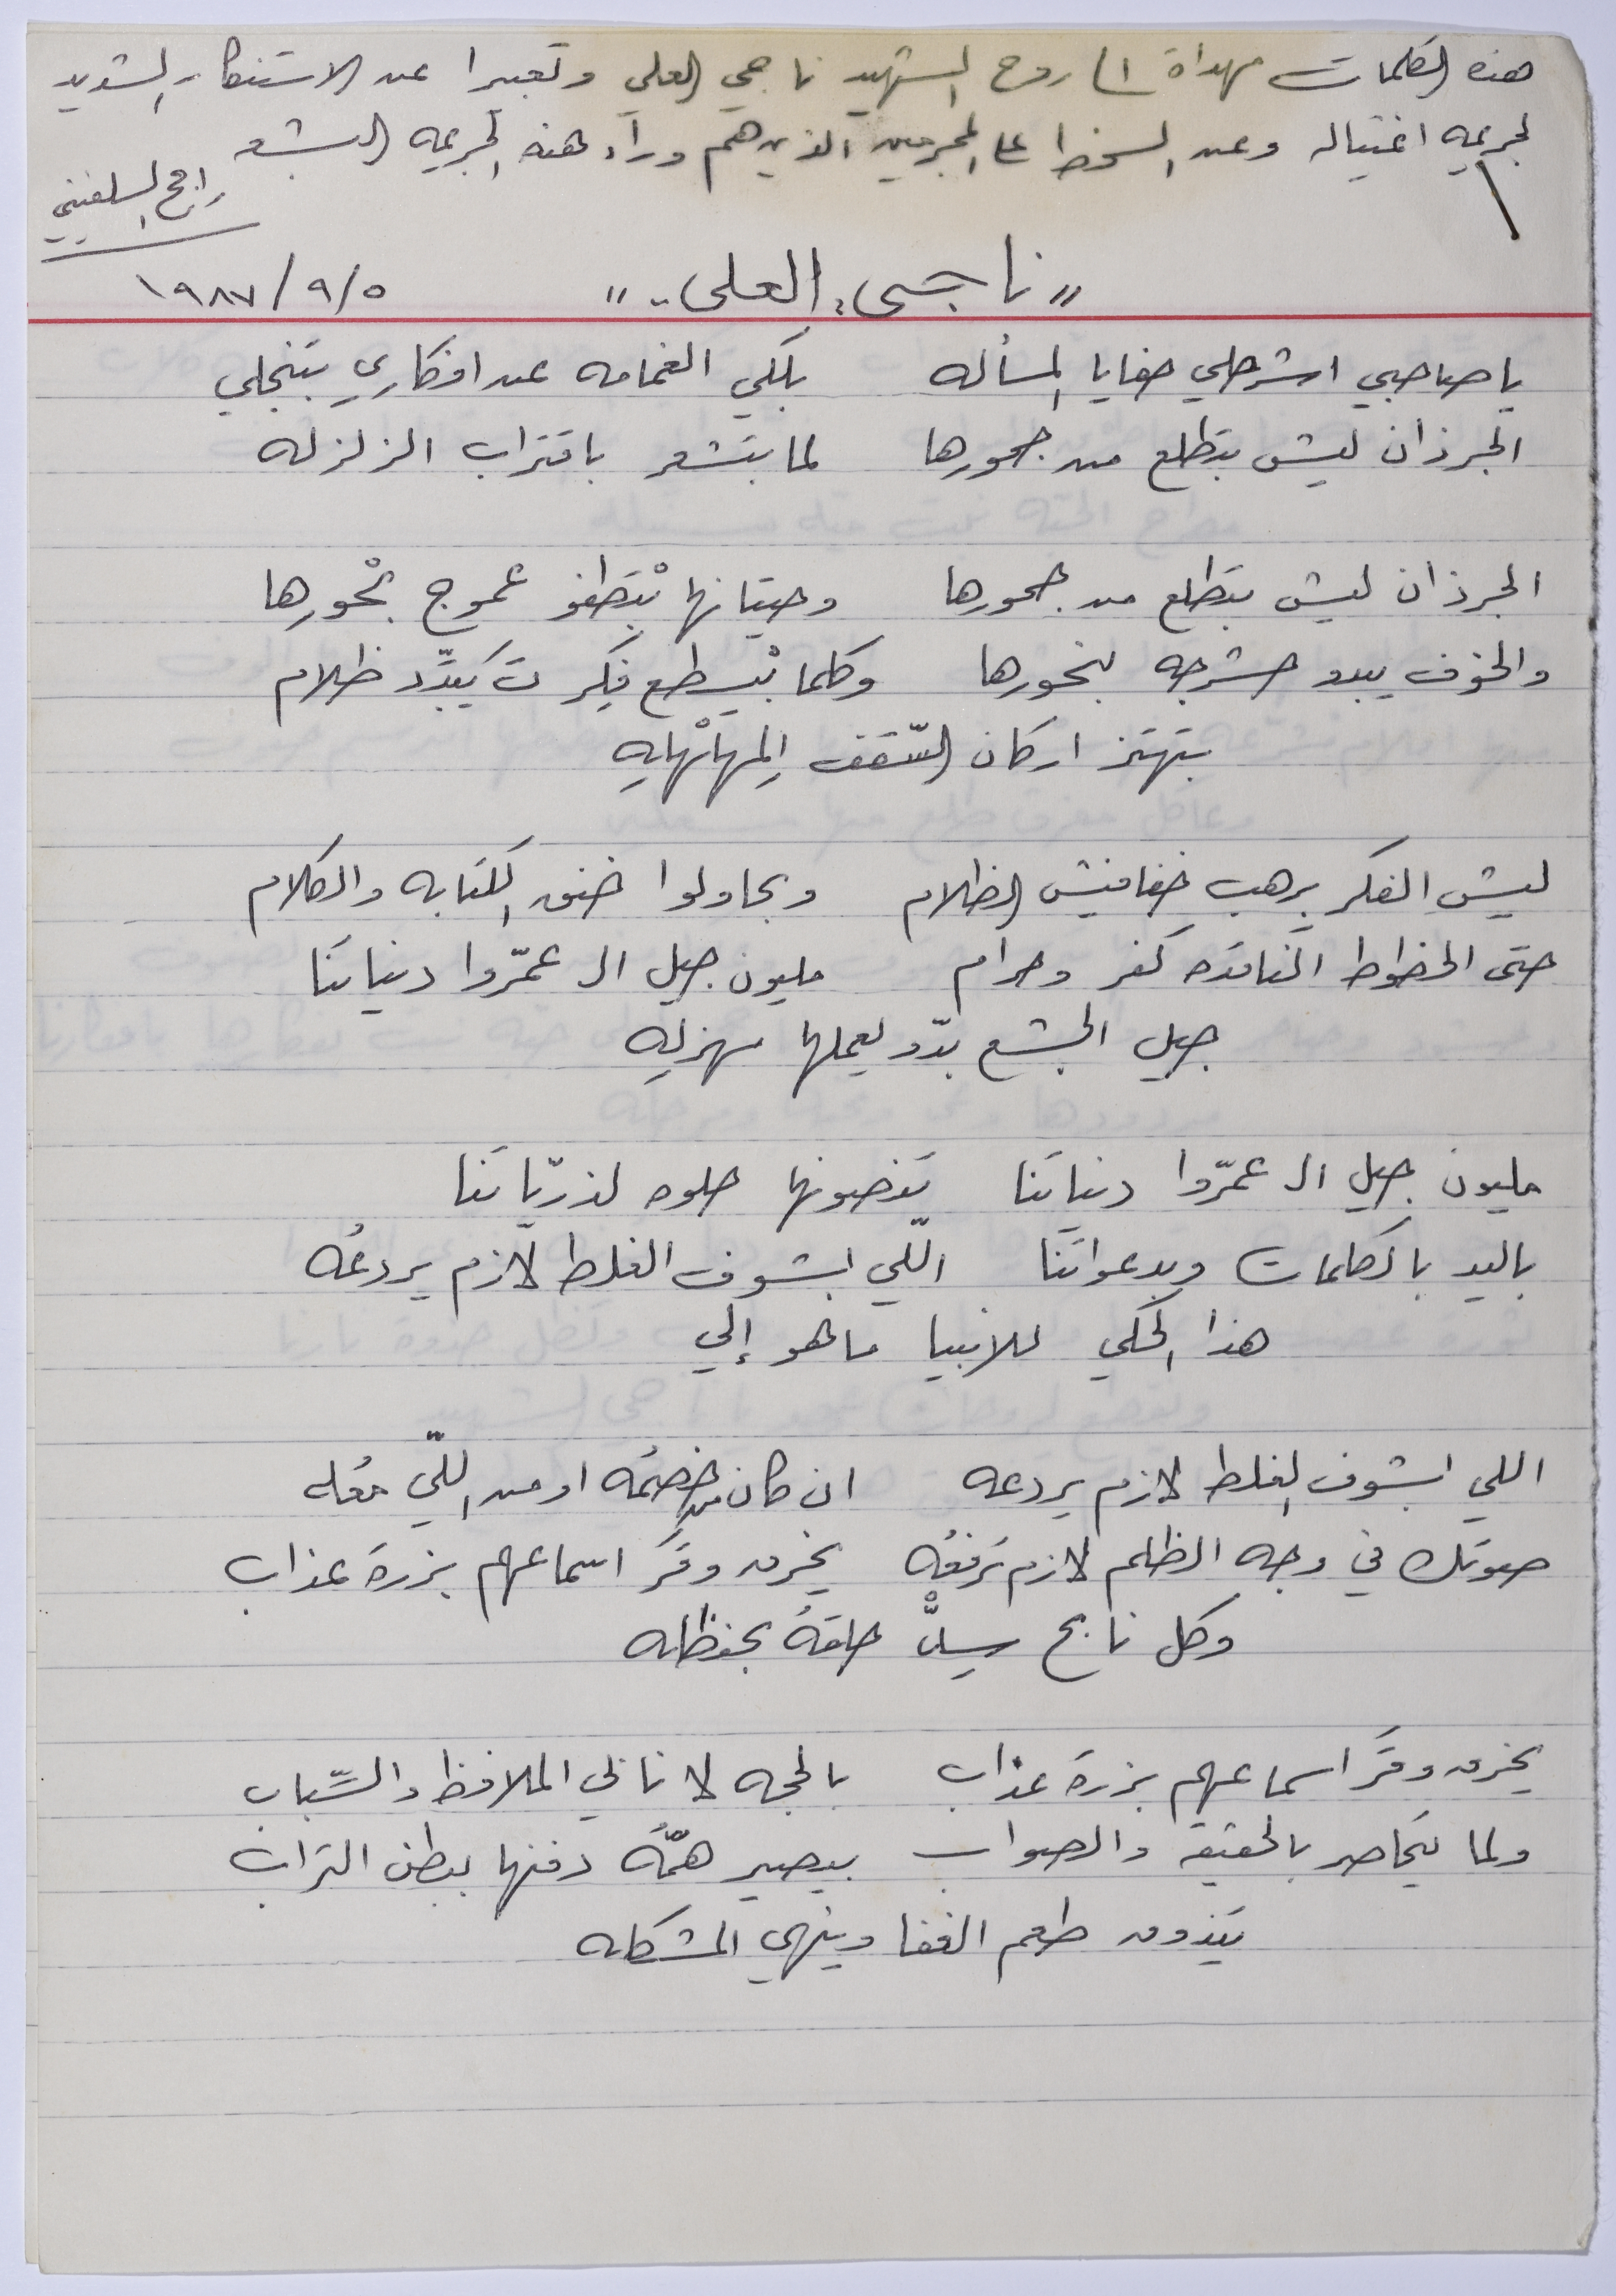 هذه الكلمات مهداة الى روح الشهيد ناجي العلي وتعبيرا عن الاستنكار الشديد
لجريمه اغتياله وعن السخط على المجرمين الذين هم وراء هذه الجريمه البشعه
راجح السلفيتي
"ناجي العلي"    ١٩٨٧/٩/٥
يا صاحبي اشرحلي خفايا المسأله    بلكي الغمامه عن افكاري بتنجلي
الجرذان ليش بتطلع من جحورها    لما بتشعر باقتراب الزلزله
الجرذان ليش بتطلع من جحورها    وحيتانها بْتطفو عموج بْحورها
والخوف يبدو حشرجه بنحورها    وكلما بْيسطع فِكر تَ يبدّد ظلام
بتهتز اركان السّقف المهلهله
ليش الفكر يرهب خفافيش الظلام    وبحاولوا خنق الكتابه والكلام
حتى الخطوط الناقده كفر وحرام    مليون جيل الـ عمّروا دنياتنا
جيل الجشع بدّو يعملها مهزله
مليون جيل الـ عمّروا دنياتنا    تنصونها حلوه لذريّاتنا
باليد بالكلمات وبدعواتنا    اللّي بشوف الغلط لازم يردعُه
هذا الحكي للانبيا ما هو إلي
اللي بشوف الغلط لازم يردعه    ان كان من خصمُه او من اللّي معُه
صوتك في وجه الظلم لازم ترفعُه    يخرق وقَر اسماعهم بزرة عذاب
وكل نابح سِدّ حلقهُ بحنظله
يخرق وقَر اسماعهم بزرة عذاب    بالحجه لا نابي الملافظ والسّباب
ولما يتحاصر بالحقيقة والصواب    بيصير همّهُ دفنها ببطن التراب
تيذوق طعم الغفا وينهي المشكله